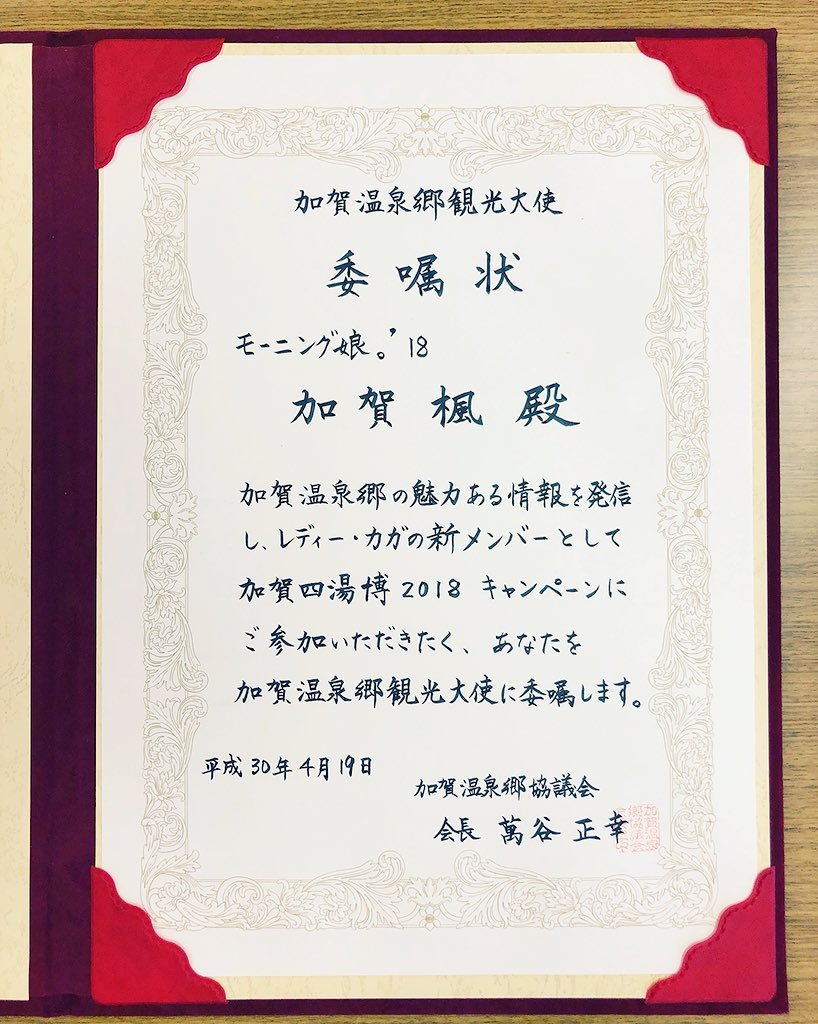 加賀温泉郷観光大使
委嘱状
モーニング娘。’18
加賀楓殿
加賀温泉郷の魅力ある情報を発信
し、レディー・カガの新メンバーとして
加賀四湯博2018 キャンペーンに
ご参加いただきたく、あなたを
加賀温泉郷観光大使に委嘱します。
平成30年4月19日
加賀温泉郷協議会
会長 萬谷正幸